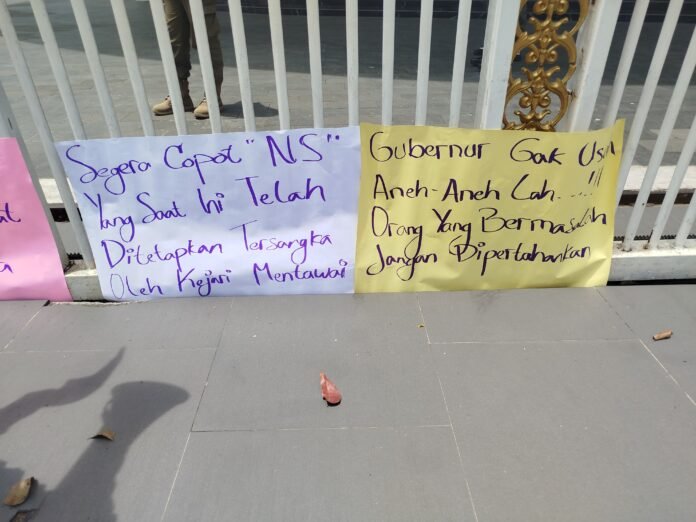 Segera Copot "NS"
Yang Saat Ini Telah
Ditetapkan Tersangka
Oleh Kejari Mentawai
Gubernur Gak Usah
Aneh-Aneh Lah....!!!
Orang Yang Bermasalah
Jangan Dipertahankan